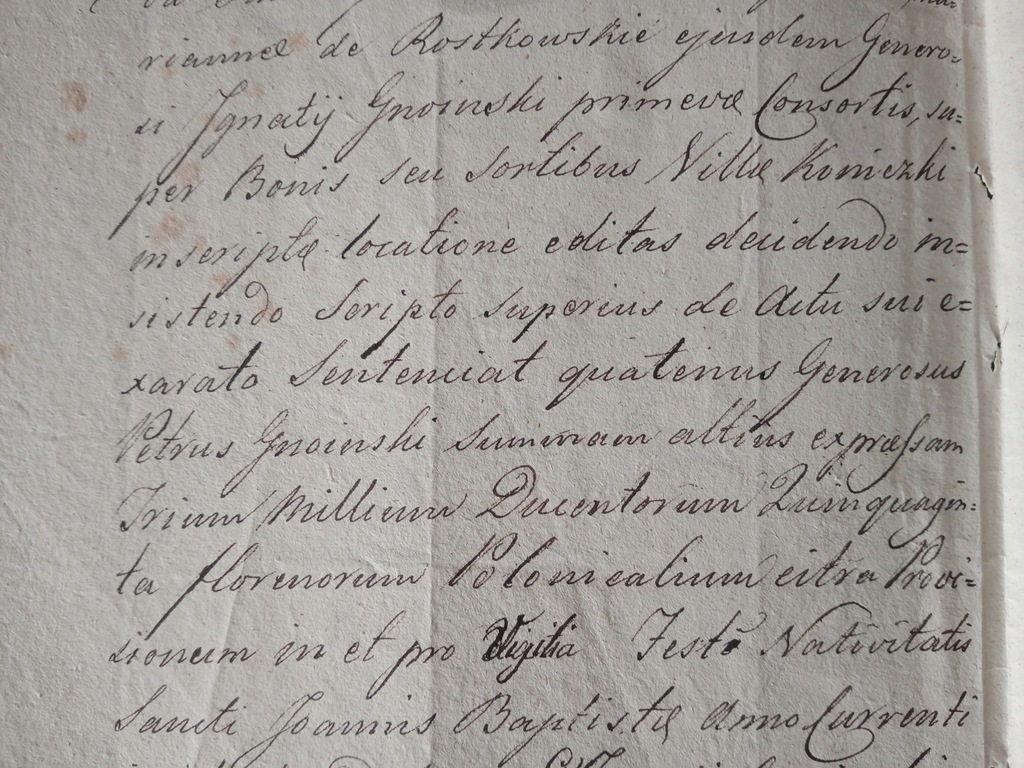 riannæ de Rostkowskie ejusdem Genero=
si Jgnatij Gnoinski primevæ Consortis, su=
per Bonis seu Sortibus Villæ Koniczki
inscriptæ locatione editas decidendo in=
sistendo Scripto superius de Actu sui e=
xarato Sentenciat quatenus Generosus
Petrus Gnoinski Summam altius expræssam
Trium Millium Ducentorum Quinquagin=
ta florenorum Polonicalium citra Provi=
sionem in et pro Vigilia Festi Nativitatis
Sancti Joannis Baptistæ Anno Currenti